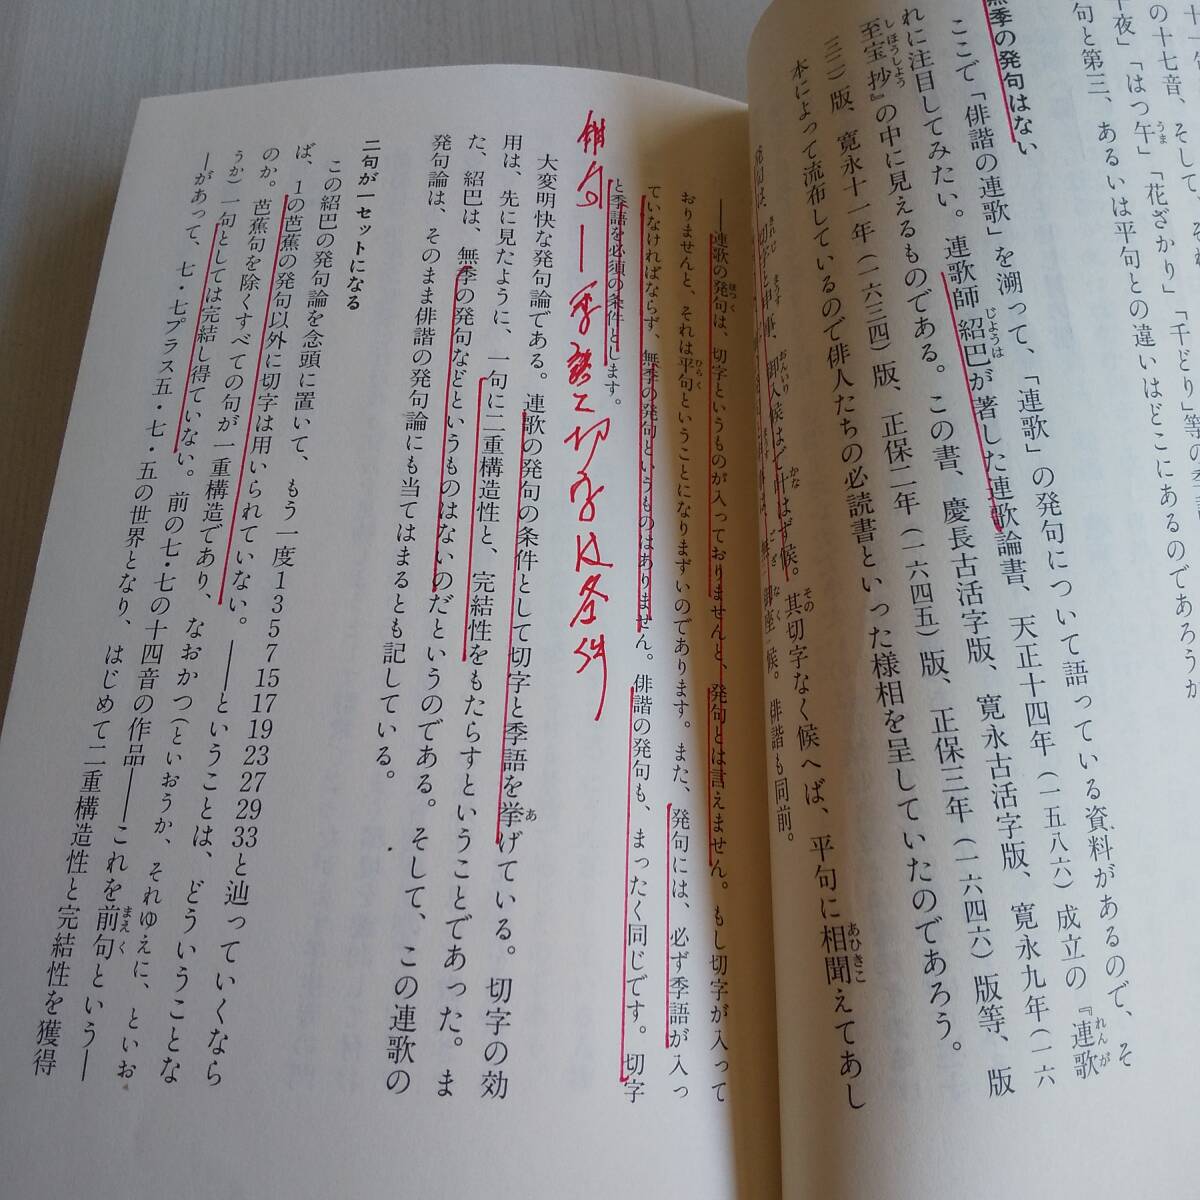 十句、そして
の十七音、そして、それ
午夜」「はつ午」「花ざかり」「千どり」等の季語
句と第三、あるいは平句との違いはどこにあるのであろうか
無季の発句はない
ここで「俳諧の連歌」を溯って、「連歌」の発句について語っている資料があるので、そ
れに注目してみたい。連歌師紹巴が著した連歌論書、天正十四年(一五八六)成立の『連歌
至宝抄』の中に見えるものである。この書、慶長古活字版、寛永古活字版、寛永九年(一六
三二)版、寛永十一年(一六三四)版、正保二年(一六四五)版、正保三年(一六四六)版等、版
本によって流布しているので俳人たちの必読書といった様相を呈していたのであろう。
発句は、切字と申事、御入候はで叶はず候。其切字なく候へば、平句に相聞えてあし
御座候。俳諧も同前。
――連歌の発句は、切字というものが入っておりませんと、発句とは言えません。もし切字が入って
おりませんと、それは平句ということになりまずいのであります。また、発句には、必ず季語が入っ
ていなければならず、無季の発句というものはありません。俳諧の発句も、まったく同じです。切字
と季語を必須の条件とします。
俳句―季語と切字は条件
大変明快な発句論である。連歌の発句の条件として切字と季語を挙げている。切字の効
用は、先に見たように、一句に二重構造性と、完結性をもたらすということであった。ま
た、紹巴は、無季の発句などというものはないのだというのである。そして、この連歌の
発句論は、そのまま俳諧の発句論にも当てはまるとも記している。
二句が一セットになる
この紹巴の発句論を念頭に置いて、もう一度1 3 5 7 15 17 19 23 27 29 33と辿っていくなら
ば、1の芭蕉の発句以外に切字は用いられていない。――ということは、どういうことな
のか。芭蕉句を除くすべての句が一重構造であり、なおかつ(といおうか、それゆえに、といお
うか)一句としては完結し得ていない。前の七・七の十四音の作品――これを前句という――
―があって、七・七プラス五・七・五の世界となり、はじめて二重構造性と完結性を獲得